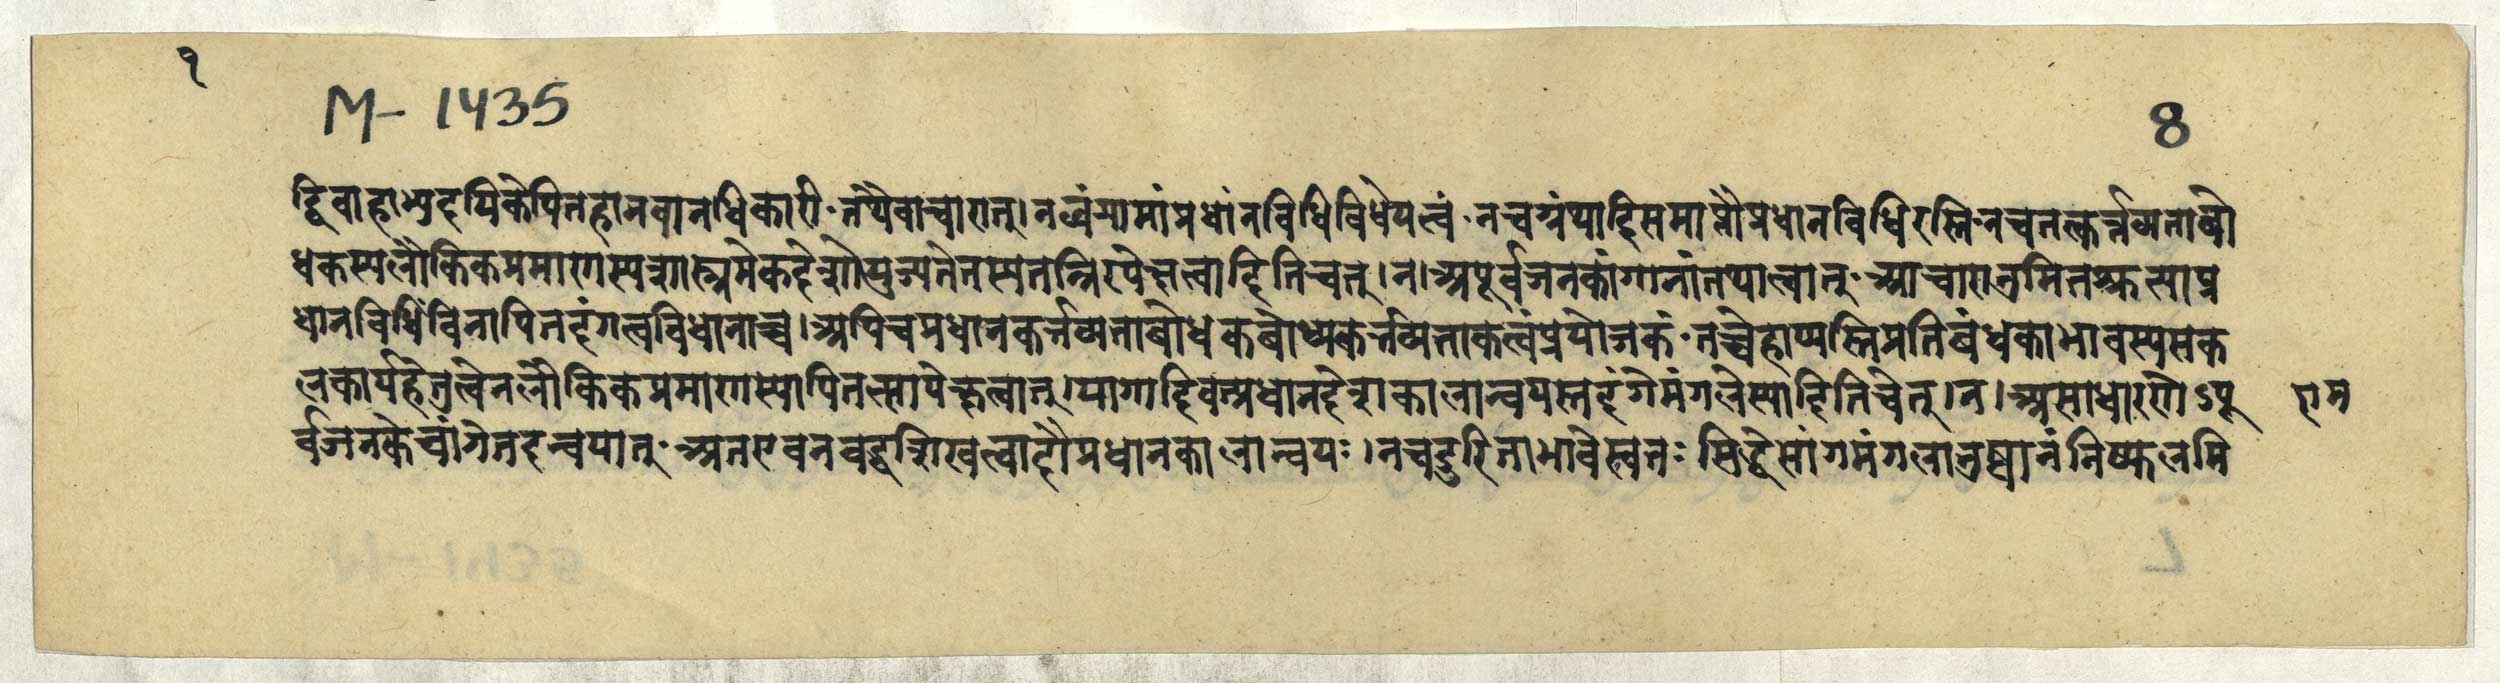 १
M- 1435
8
द्विवाहाभ्युदयिकेपितद्दानवानधिकारी॰तथैवाचारात्।नत्वंगानांप्रधांनविधिविधेयत्वं॰नचग्रंथादिसमाप्तौप्रधानविधिरस्ति॰नचतत्कर्त्तव्यताबो
धकस्यलौकिकप्रमाणस्यशास्त्रमेकदेशोयुज्यतेतस्यतन्निरपेक्षत्वादितिचेत्।न।अपूर्वजनकांगानांतथात्वात्॰आचारानुमितश्रुत्याप्र
धानविधिंविनापितदंगत्वविधानाच्च।अपिचप्रधानकर्त्तव्यताबोधकबोध्यकर्त्तव्यताकत्वंप्रयोजकं॰तच्चेहाप्यस्तिप्रतिबंधकाभावस्यसक
लकार्यहेतुत्वेनलौकिकप्रमाणस्यापितत्सापेक्षत्वात्।यागादिवत्प्रधानदेशकालान्वयस्तदंगेमंगलेस्यादितिचेत्।न।असाधारणेऽपू
राम
र्वजनकेचांगेतदन्वयात्॰अतएवनवद्धशिखत्वादौप्रधानकालान्वयः।नचदुरिताभावेस्वतःसिद्धेसांगमंगलानुष्ठानंनिष्फलमि